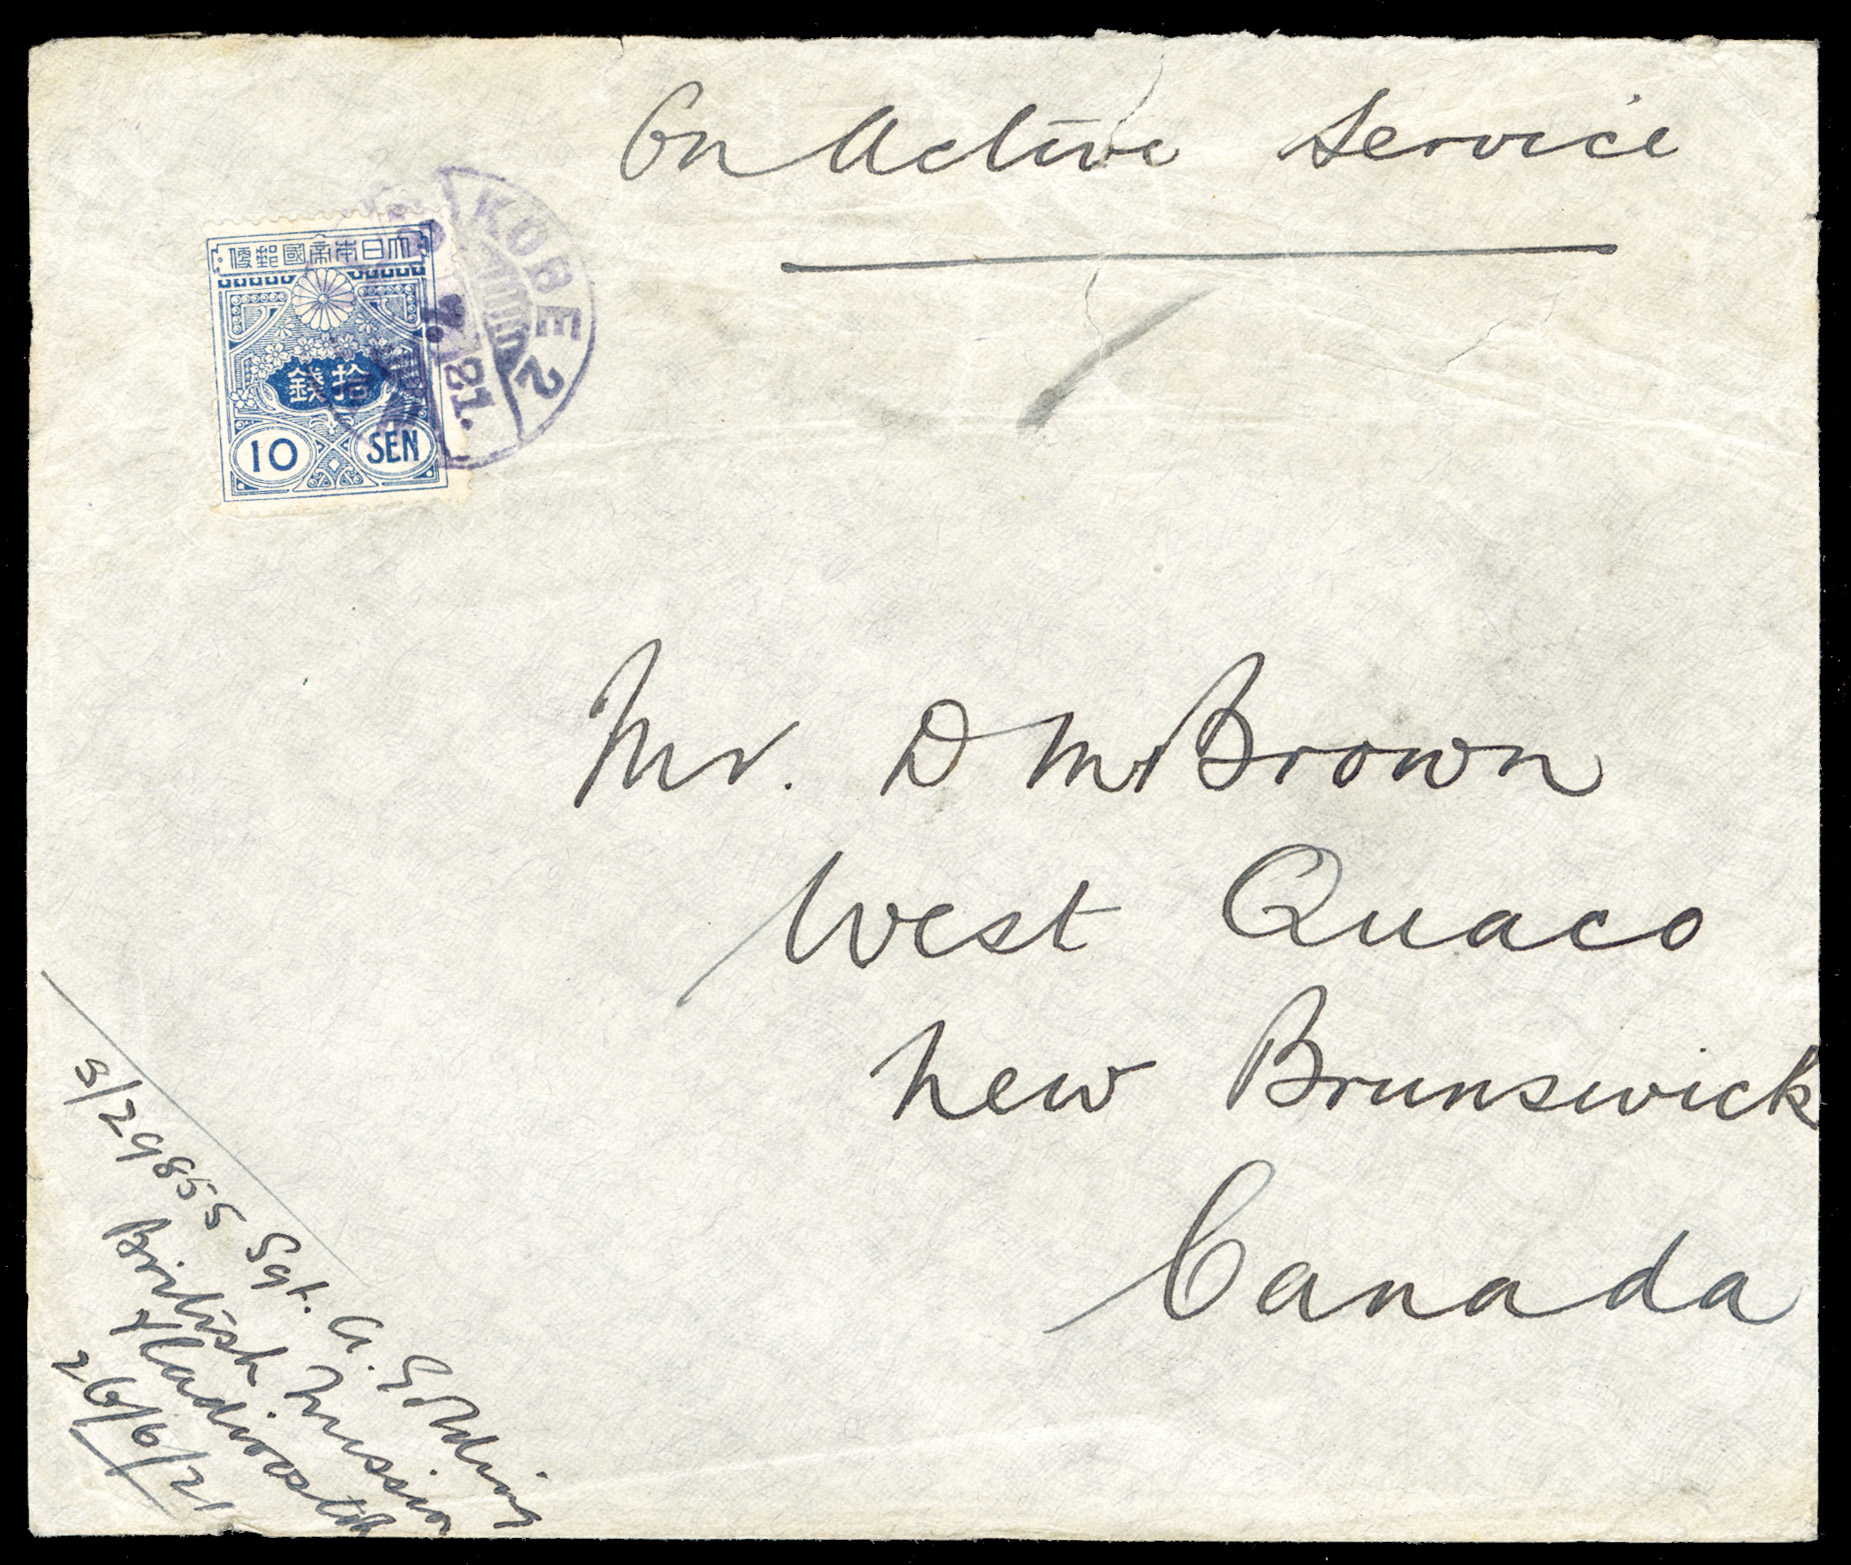 On Active Service
KOBE 2
7. 21.
大日本帝國郵便
拾錢
10 SEN
Mr. D M Brown
West Quaco
New Brunswick
Canada
S/29855 Sgt. A. Golding
British Mission
Vladivostok
26/6/21